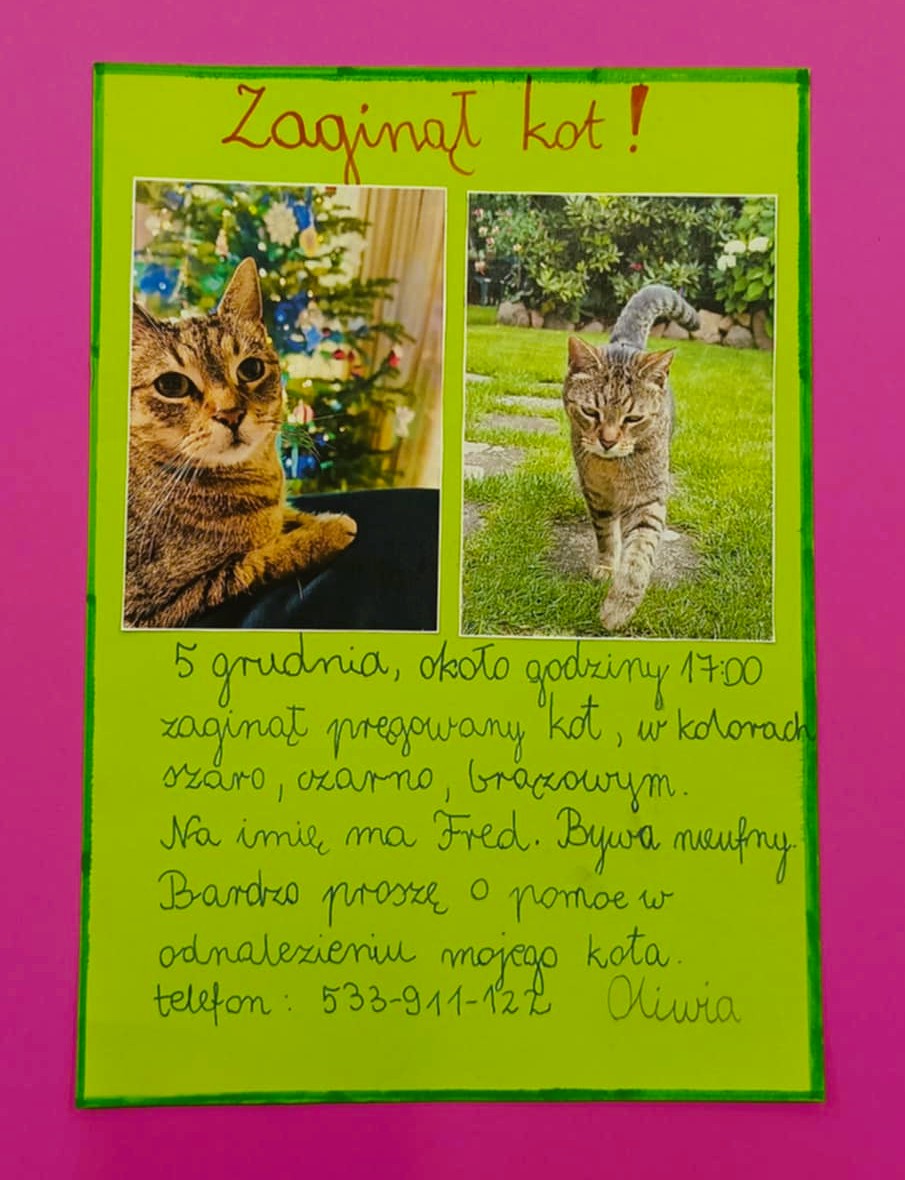 Zaginął kot!
5 grudnia, około godziny 17:00
zaginął pręgowany kot, w kolorach
szaro, czarno, brązowym.
Na imię ma Fred. Bywa nieufny.
Bardzo proszę o pomoc w
odnalezieniu mojego kota.
telefon: 533-911-122 Oliwia